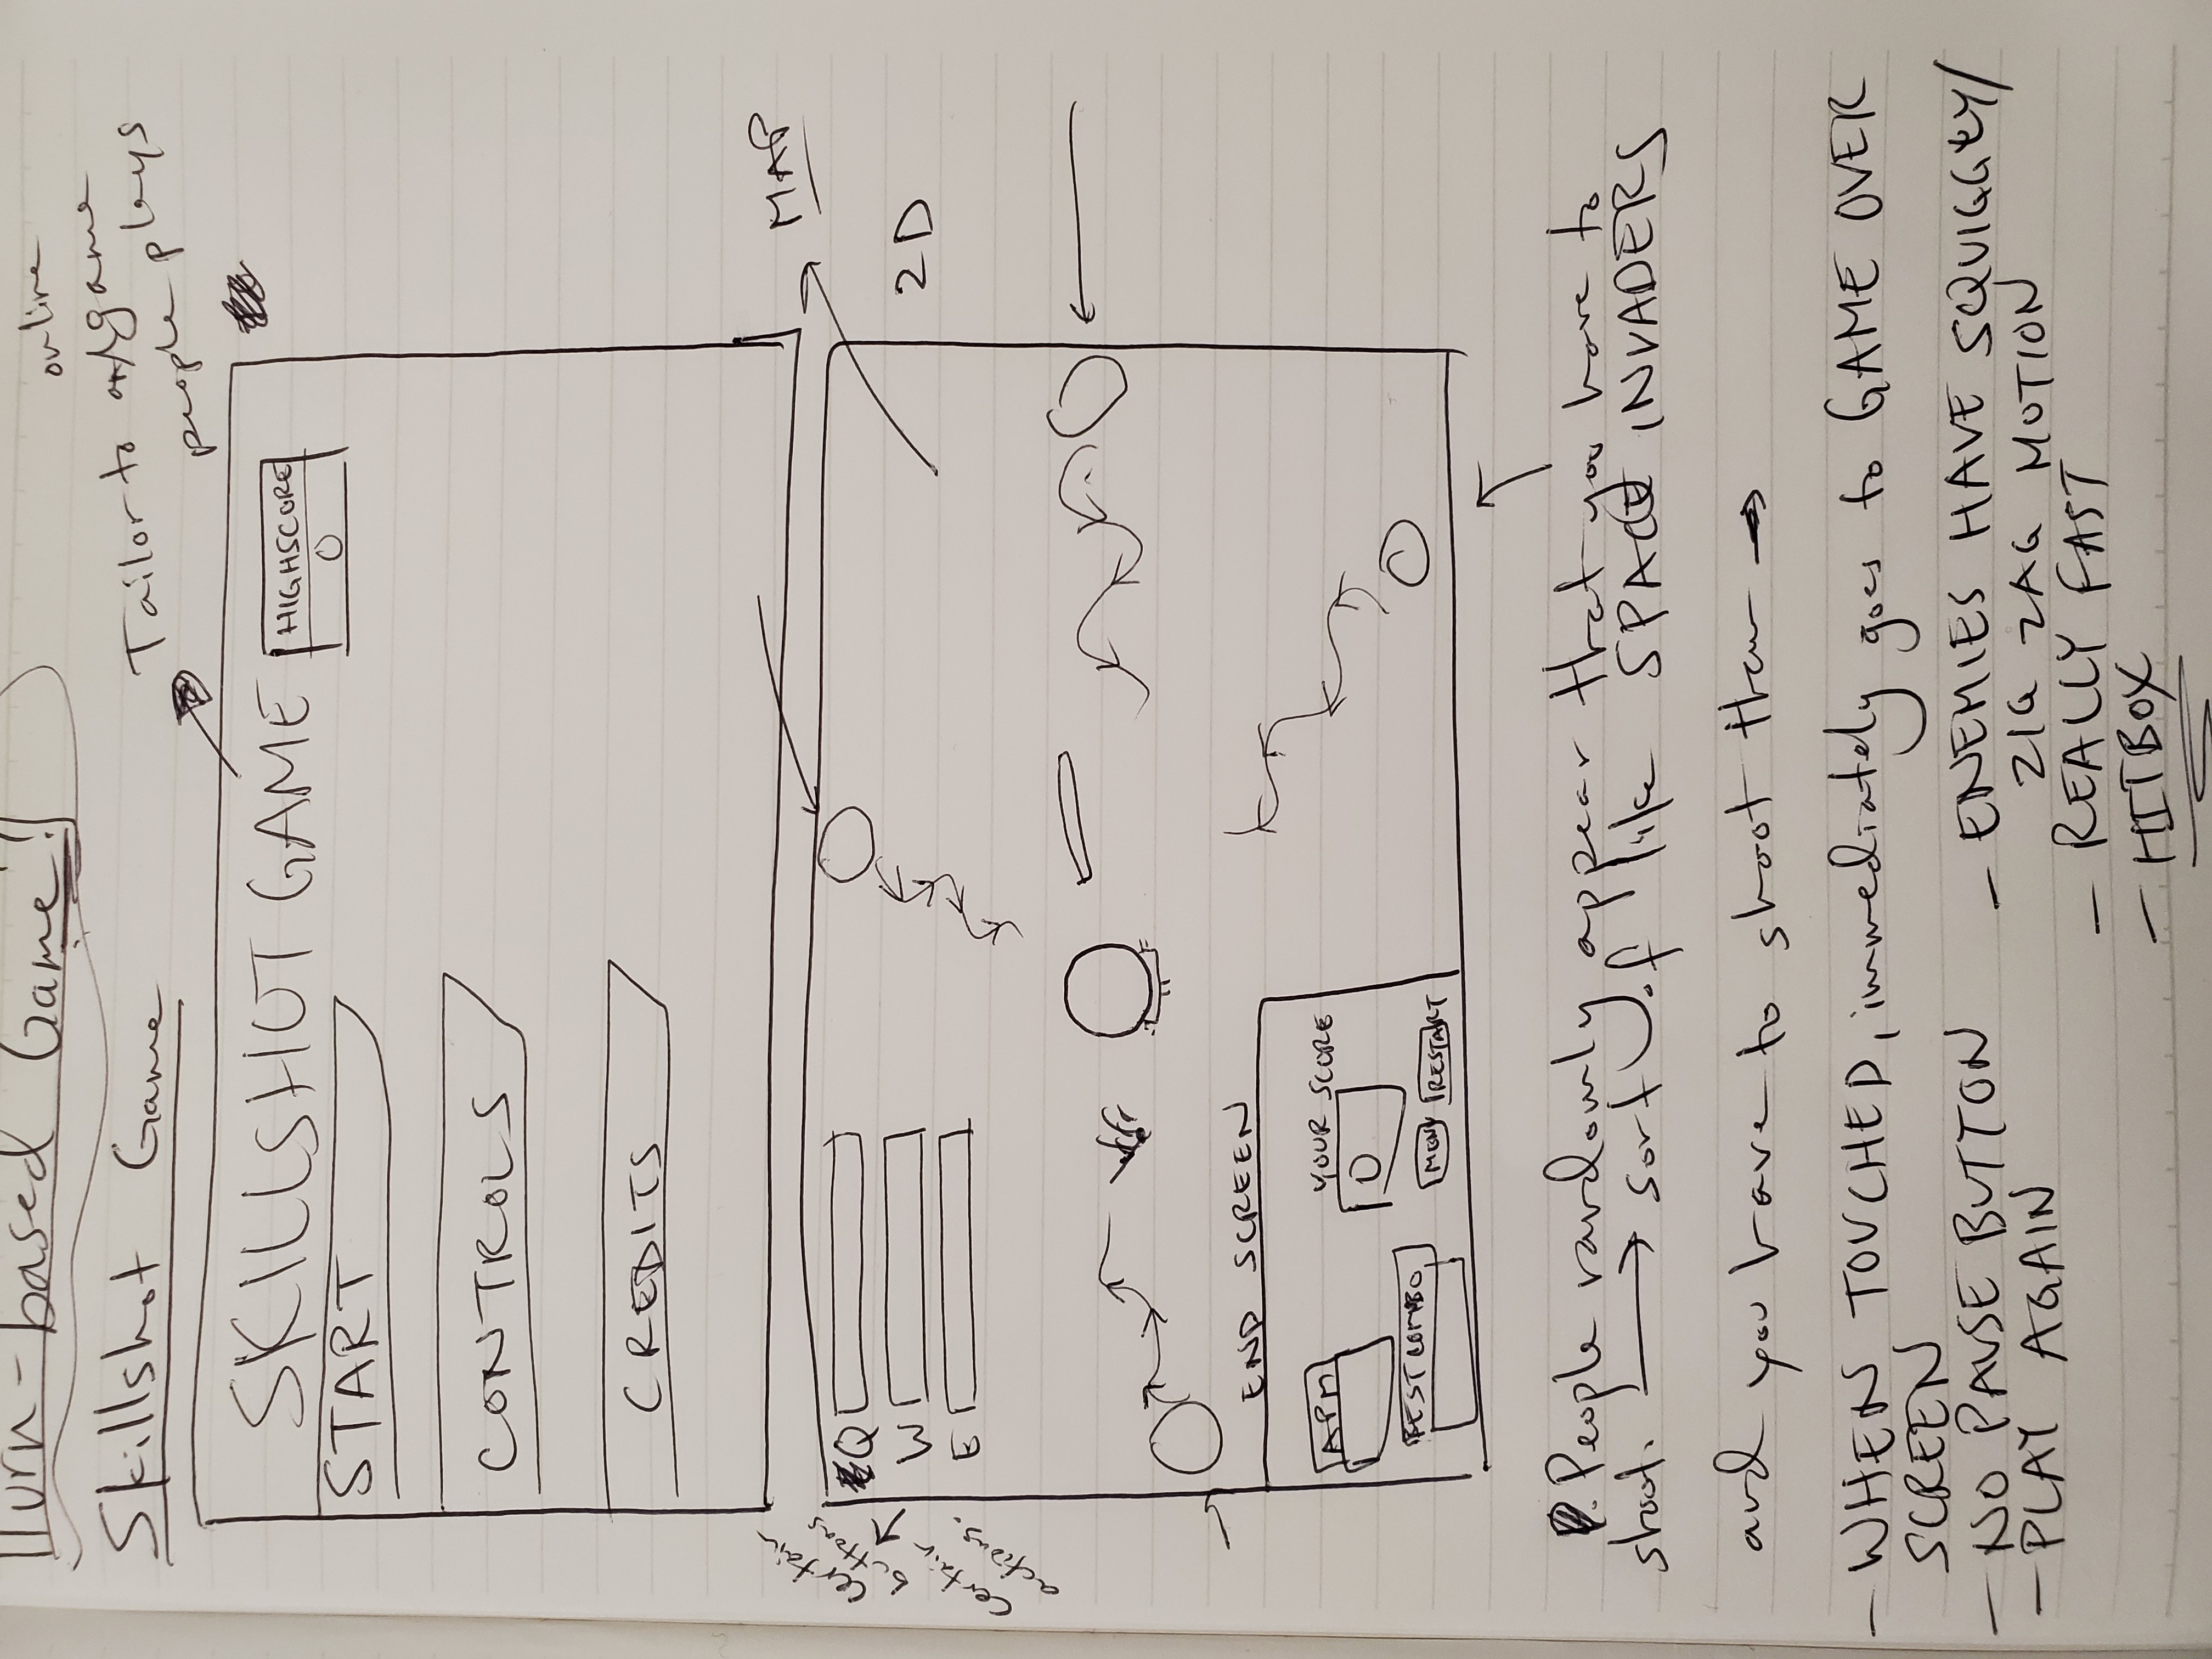 Turn-based Game!
Skillshot Game
online
Tailor to game
people plays
SKILLSHOT GAME
HIGHSCORE
0
START
CONTROLS
CREDITS
certain
buttons
certain
actions.
MAP
2D
Q
W
E
END SCREEN
APM
YOUR SCORE
0
BEST COMBO
MENU
RESTART
People randomly appear that you have to
shoot. → sort of like SPACE INVADERS
and you have to shoot them →
- WHEN TOUCHED, immediately goes to GAME OVER
SCREEN
- NO PAUSE BUTTON
- PLAY AGAIN
- ENEMIES HAVE SQUIGGLY/
ZIG ZAG MOTION
- REALLY FAST
- HITBOX